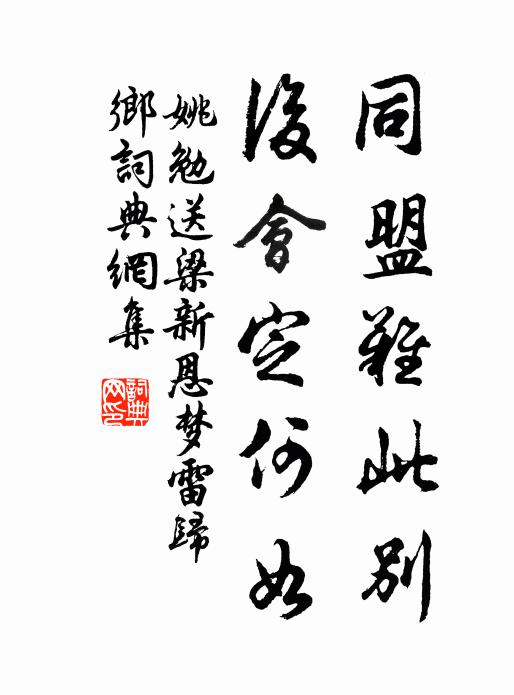 同盟難此別
後會定何如
姚勉送梁新恩夢雷歸
鄉詞典網集
詞典
网印